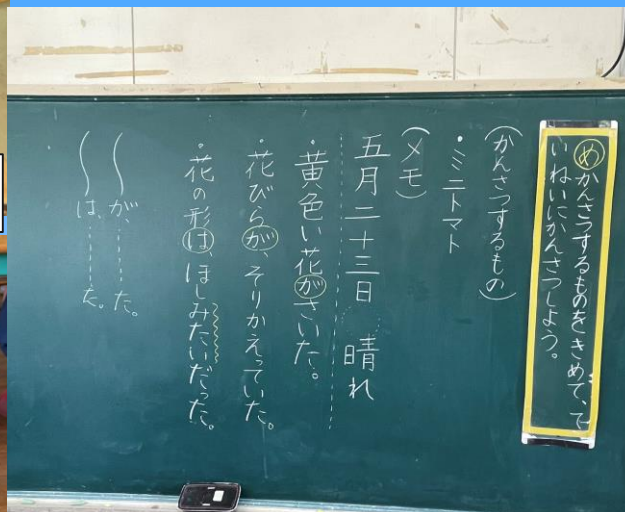 めかんさつするものをきめて、て
いねいにかんさつしよう。
(かんさつするもの)
・ミニトマト
(メモ)
五月二十三日 晴れ
・黄色い花がさいた。
・花びらが、そりかえっていた。
・花の形は、ほしみたいだった。
〜が、………た。
〜は、………た。